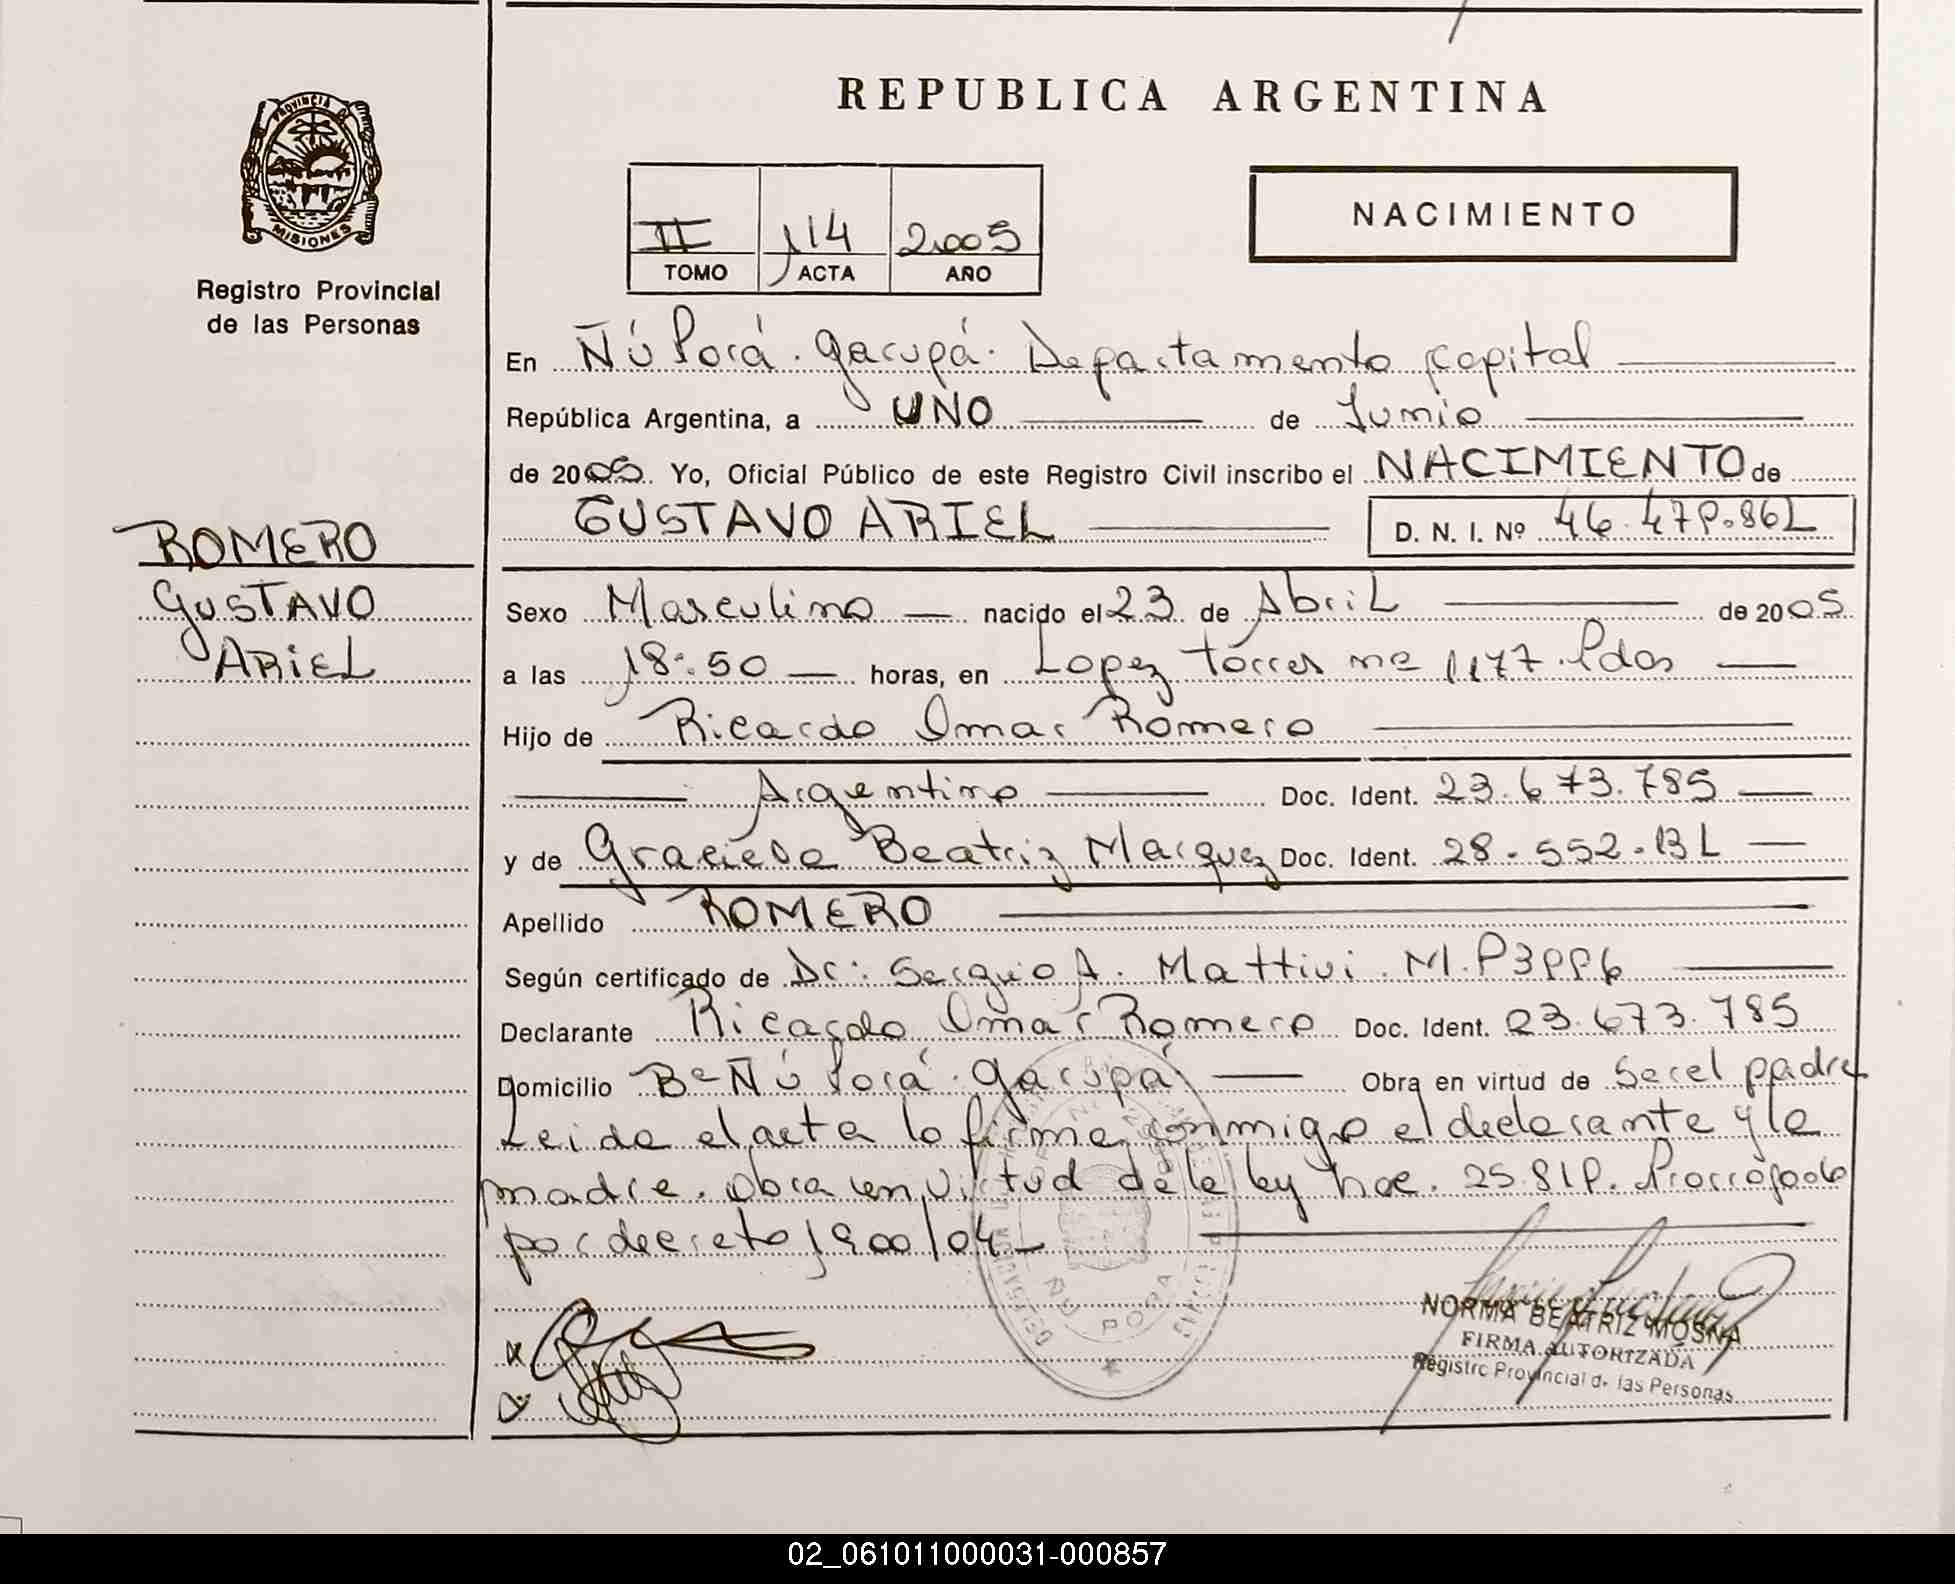 REPUBLICA ARGENTINA
PROVINCIA DE
MISIONES
Registro Provincial
de las Personas
II 114 2005
TOMO ACTA AÑO
NACIMIENTO
En Ñú Porá. Garupá. Departamento Capital
República Argentina, a UNO de Junio
de 2005. Yo, Oficial Público de este Registro Civil inscribo el NACIMIENTO de
GUSTAVO ARIEL D. N. I. Nº
ROMERO
GUSTAVO
ARIEL
Sexo Masculino nacido el 23 de Abril de 2005
a las 18:50 horas, en Lopez Torres nº 1177. Pdas
Hijo de Ricardo Omar Romero
Argentino Doc. Ident. 23.673.785
y de Graciela Beatriz Marquez Doc. Ident. 28.552.
Apellido ROMERO
Según certificado de Dr: Sergio A. Mattivi. M.P
Declarante Ricardo Omar Romero Doc. Ident. 23.673.785
Domicilio Bº Ñú Porá. Garupá Obra en virtud de Ser el padre
Leida el acta la firma conmigo el declarante y la
madre. Obra en virtud de la ley nac. 25.819. Prorrogado
por decreto 1900/04
ÑU PORA
NORMA BEATRIZ MOSNA
FIRMA AUTORIZADA
Registro Provincial de las Personas
02_061011000031-000857